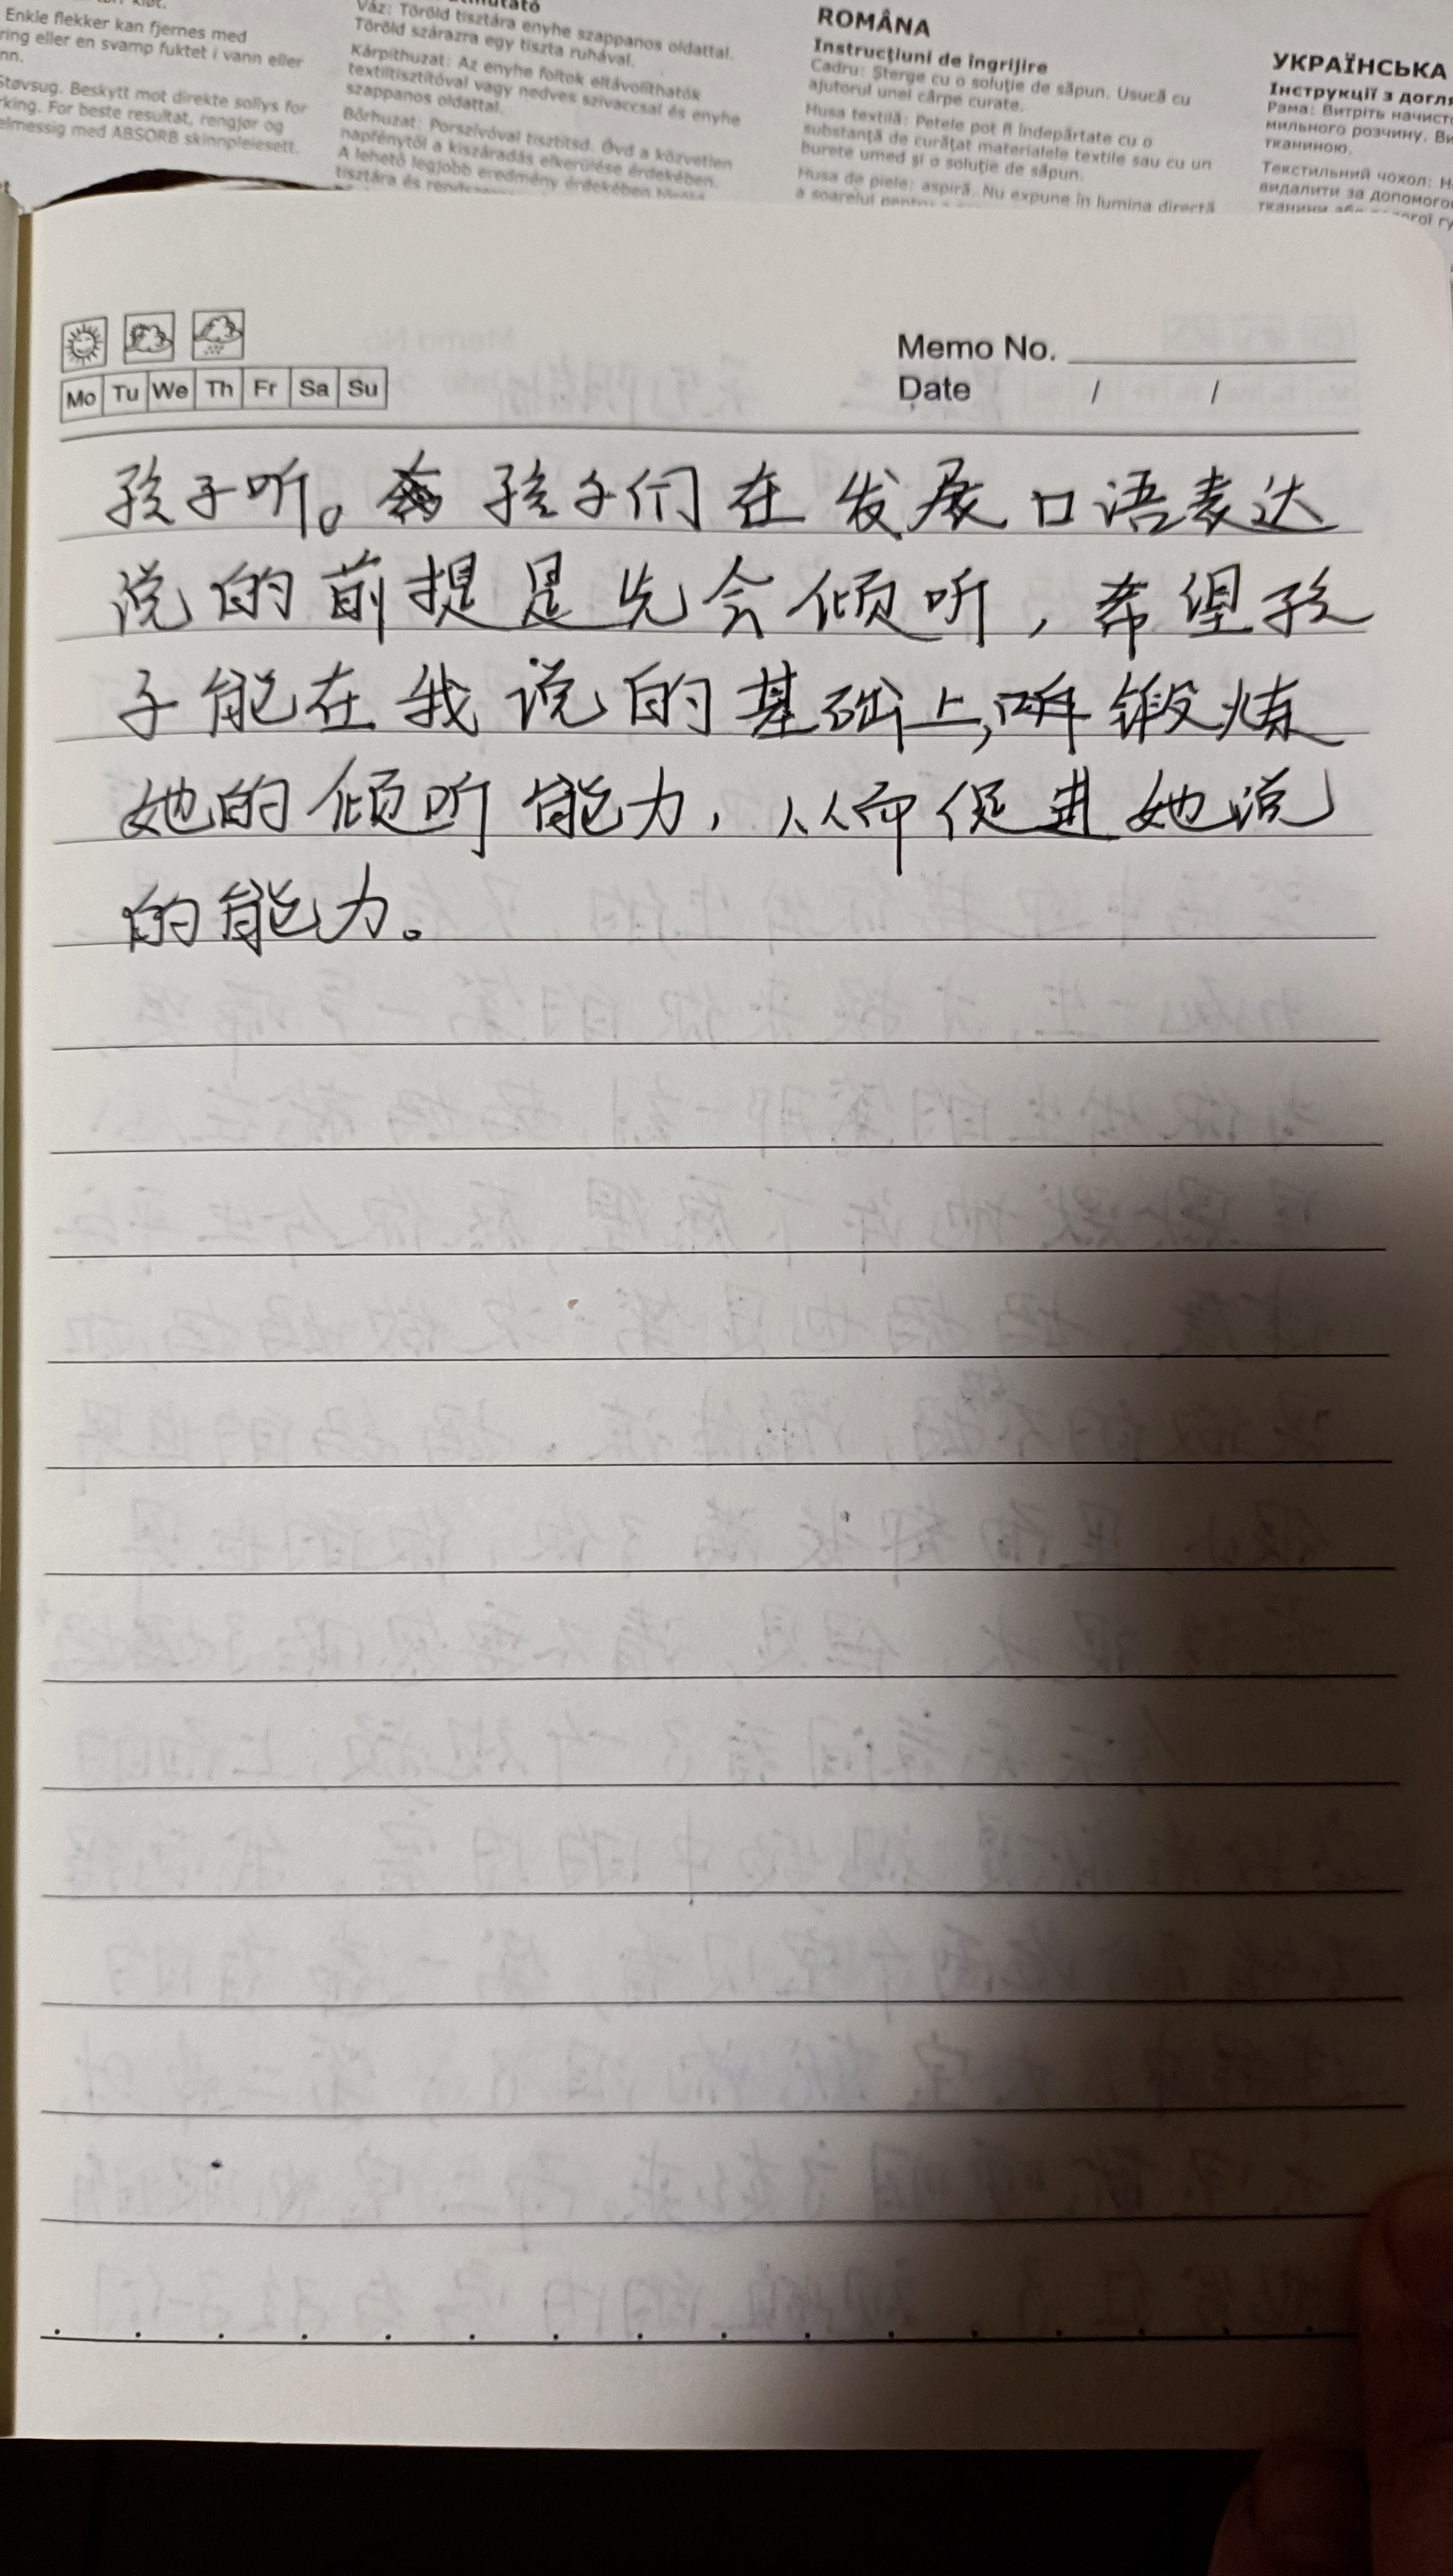 Enkle flekker kan fjernes med
ring eller en svamp fuktet i vann eller
nn.
Støvsug. Beskytt mot direkte sollys for
rking. For beste resultat, rengjør og
elmessig med ABSORB skinnpleiesett.
Váz: Töröld tisztára enyhe szappanos oldattal.
Töröld szárazra egy tiszta ruhával.
Kárpithuzat: Az enyhe foltok eltávolíthatók
textiltisztítóval vagy nedves szivaccsal és enyhe
szappanos oldattal.
Bőrhuzat: Porszívóval tisztítsd. Óvd a közvetlen
napfénytől a kiszáradás elkerülése érdekében.
A lehető legjobb eredmény érdekében
tisztára és
ROMÂNA
Instrucţiuni de îngrijire
Cadru: Şterge cu o soluţie de săpun. Usucă cu
ajutorul unei cârpe curate.
Husa textilă: Petele pot fi îndepărtate cu o
substanţă de curăţat materialele textile sau cu un
burete umed şi o soluţie de săpun.
Husa de piele: aspiră. Nu expune în lumina directă
a soarelui pentru a
УКРАЇНСЬКА
Інструкції з догля
Рама: Витріть начисто
мильного розчину. Ви
тканиною.
Текстильний чохол: Н
видалити за допомого
тканини або
Memo No.
Mo Tu We Th Fr Sa Su
Date / /
孩子听。孩子们在发展口语表达
说的前提是先会倾听，希望孩
子能在我说的基础上，锻炼
她的倾听能力，从而促进她说
的能力。